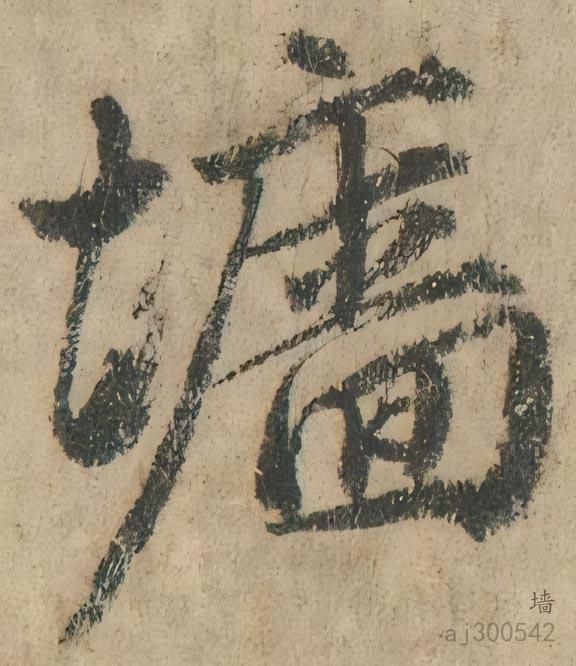 墻
墙
aj300542